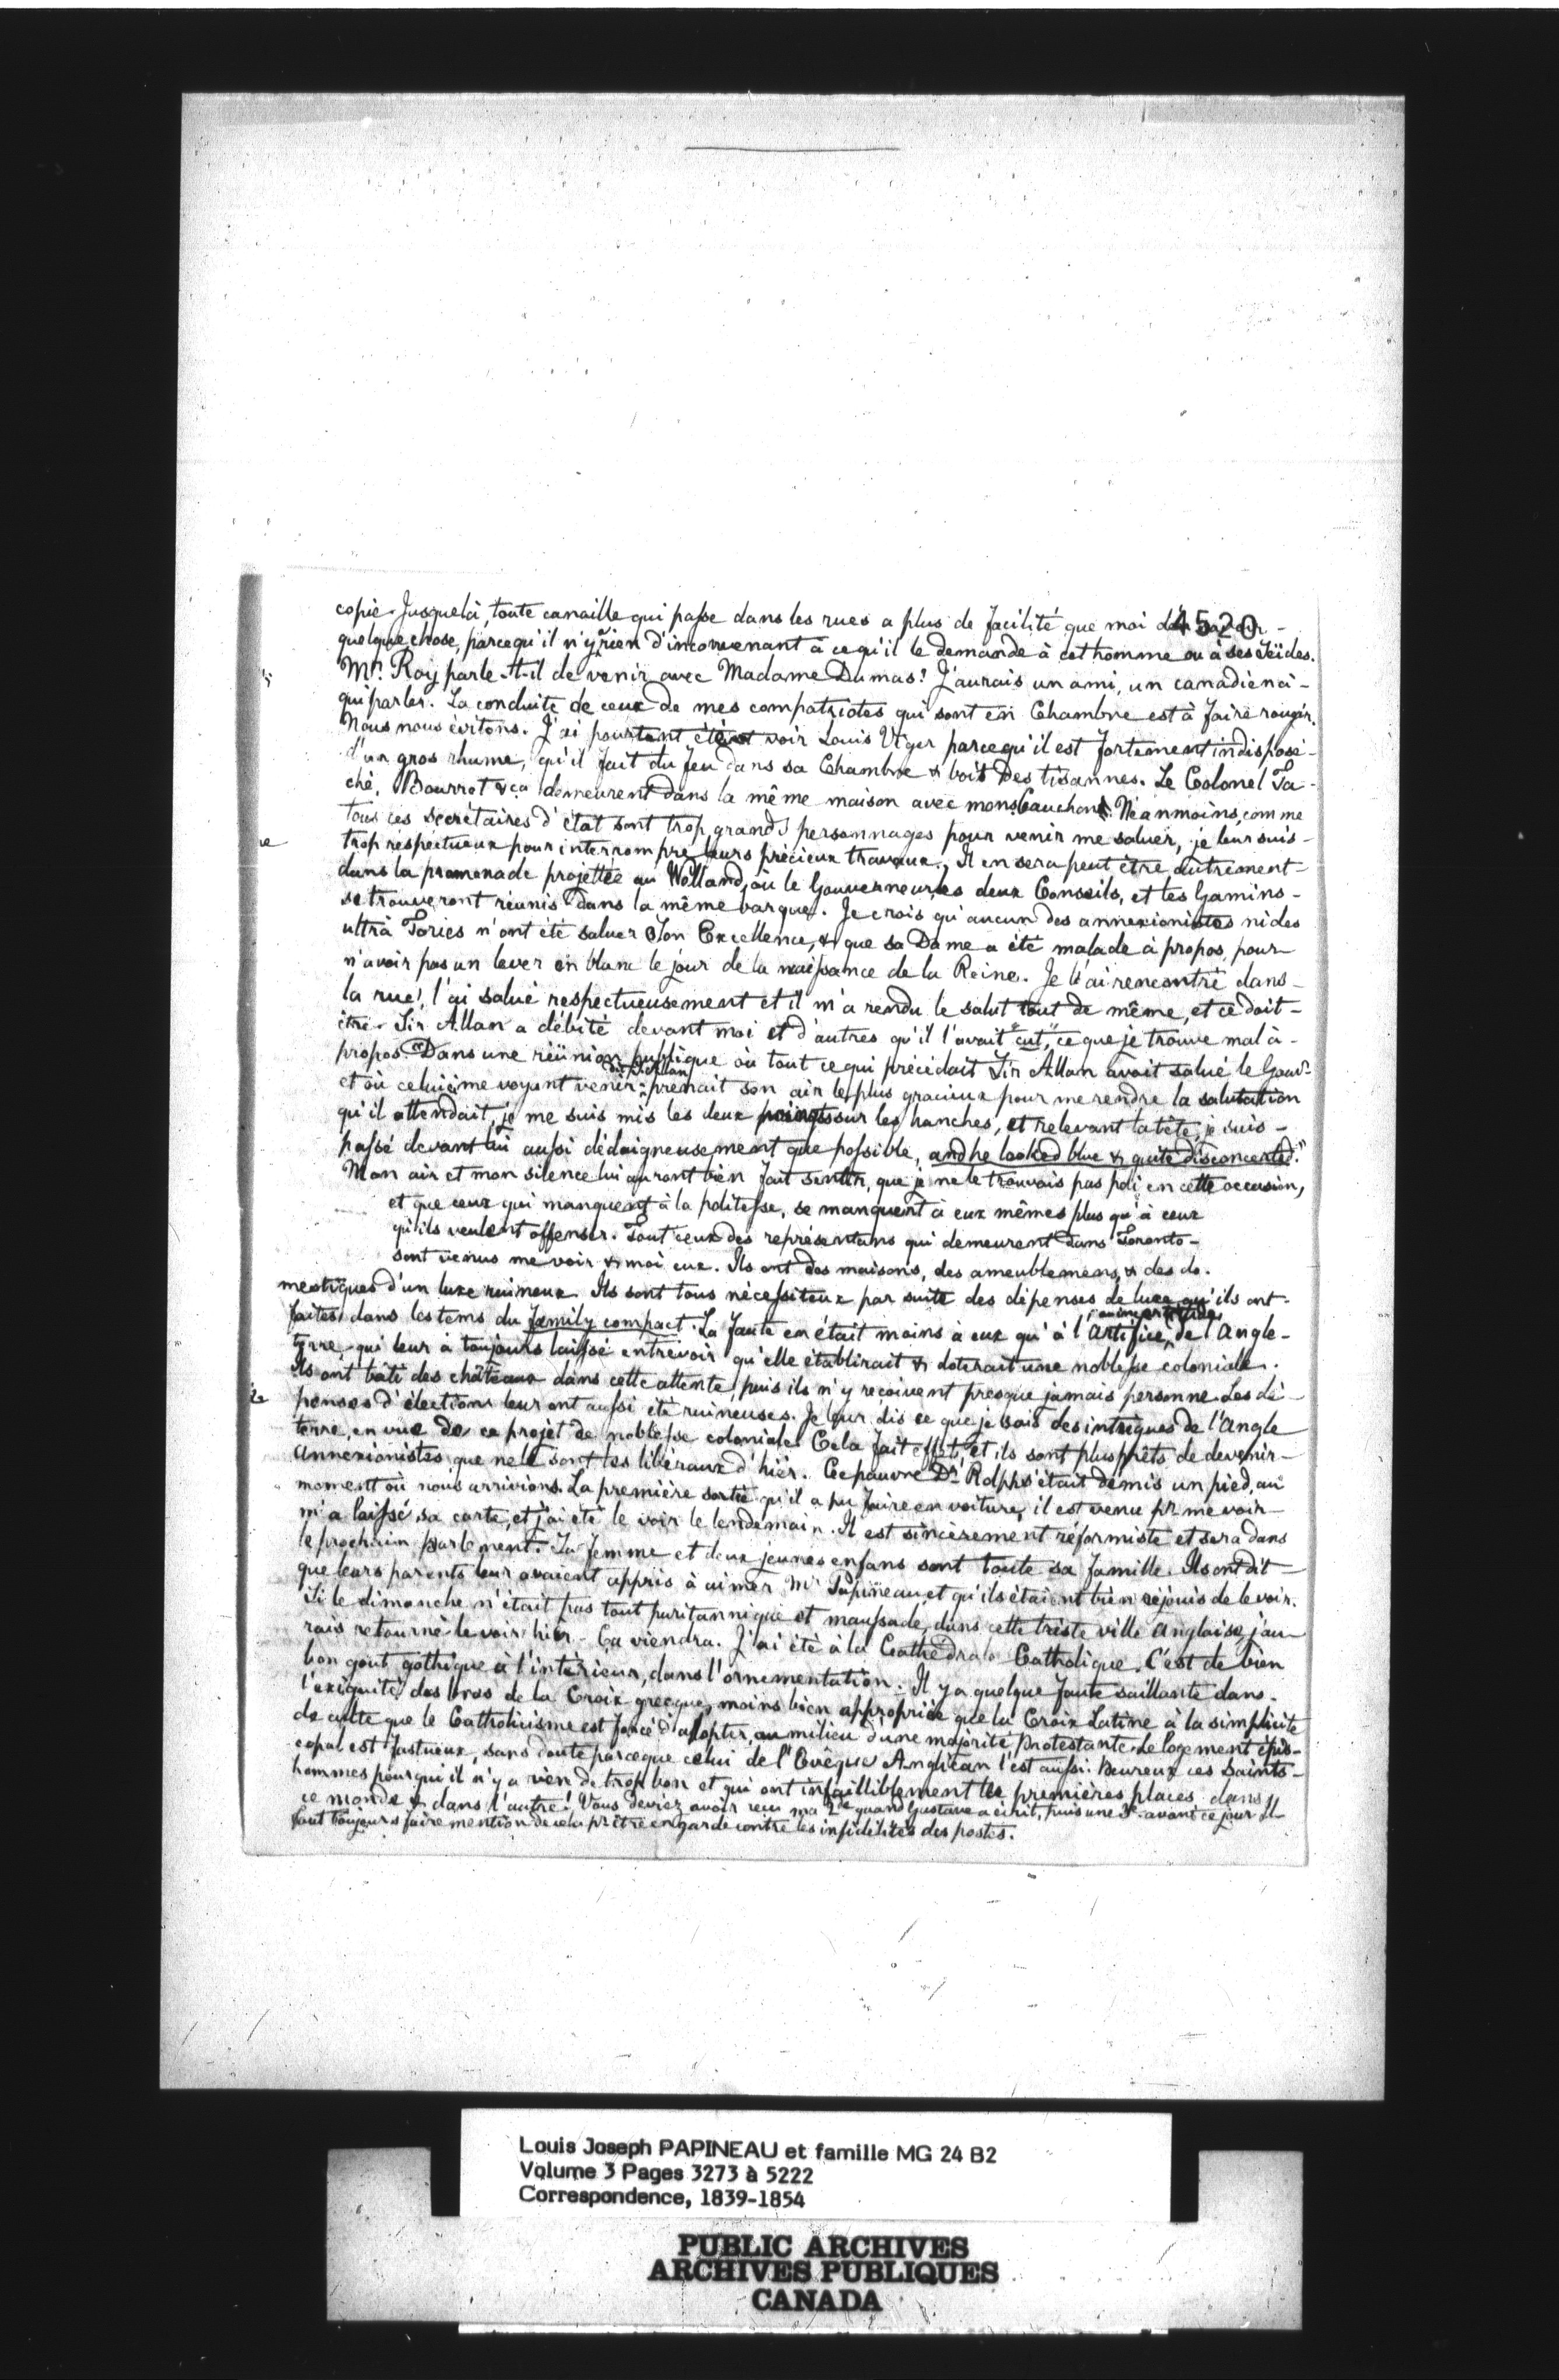 4520
copie. Jusque là, toute canaille qui passe dans les rues a plus de facilité que moi
quelque chose, parcequ'il n'y a rien d'inconvenant à ce qu'il le demande à cet homme ou à ses Séïdes.
Mr. Roy parle-t-il de venir avec Madame Dumas? J'aurais un ami, un canadien à-
qui parler. La conduite de ceux de mes compatriotes qui sont en Chambre est à faire rougir.
Nous nous évitons. J'ai pourtant été voir Louis Viger parcequ'il est fortement indisposé-
d'un gros rhume, qu'il fait du feu dans sa Chambre & boit des tisannes. Le Colonel Ta-
ché, Bourret &ca demeurent dans la même maison avec mons. Cauchon. Néanmoins, comme
tous ces Secrétaires d'état sont trop grands personnages pour venir me saluer, je leur suis-
trop respectueux pour interrompre leurs précieux travaux. Il en sera peut être autrement-
dans la promenade projettée au Welland, où le Gouverneur, les deux Conseils, et les Gamins-
se trouveront réunis dans la même barque. Je crois qu'aucun des annexionistes ni des
ultra Tories n'ont été saluer Son Excellence, & que sa Dame a été malade à propos, pour
n'avoir pas un lever en blanc le jour de la naissance de la Reine. Je l'ai rencontré dans-
la rue, l'ai salué respectueusement et il m'a rendu le salut tout de même, et ce doit-
être. Sir Allan a débité devant moi et d'autres qu'il l'avait "cut", ce que je trouve mal à-
propos. "Dans une réünion publique où tout ce qui précédait Sir Allan avait salué le Gouvr
dit Sir Allan
et où celui ci me voyant venir prenait son air le plus gracieux pour me rendre la salutation
qu'il attendait, je me suis mis les deux poings sur les hanches, et relevant la tête, je suis-
passé devant lui aussi dédaigneusement que possible, and he looked blue & quite disconcerted."
Mon air et mon silence lui auront bien fait sentir, que je ne le trouvais pas poli en cette occasion,
et que ceux qui manquent à la politesse, se manquent à eux mêmes plus qu'à ceux
qu'ils veulent offenser. Tout ceux des représentans qui demeurent dans Toronto-
sont venus me voir & moi eux. Ils ont des maisons, des ameublemens, & des do.
mestiques d'un luxe ruineux. Ils sont tous nécessiteux par suite des dépenses de luxe qu'ils ont-
faites dans les tems du family compact. La faute en était moins à eux qu'à l'artifice, de l'Angle-
terre, qui leur à toujours laissé entrevoir qu'elle établirait & doterait une noblesse coloniale.
Ils ont bâti des châteaux dans cette attente, puis ils n'y reçoivent presque jamais personne. Les dé-
penses d'élections leur ont aussi été ruineuses. Je leur dis ce que je sais des intrigues de l'Angle
terre, en vue de ce projet de noblesse coloniale. Cela fait effet, et ils sont plus prêts de devenir-
Annexionistes que ne le sont les libéraux d'hiér. Ce pauvre Dr. Rolph s'était démis un pied, au
moment où nous arrivions. La première sortie qu'il a pu faire en voiture, il est venu pr. me voir-
m'a laissé sa carte, et j'ai été le voir le lendemain. Il est sincèrement réformiste et sera dans
le prochain parlement. Sa femme et deux jeunes enfans sont toute sa famille. Ils ont dit-
que leurs parents leur avaient appris à aimer Mr Papineau et qu'ils étaient bien réjouis de le voir.
Si le dimanche n'était pas tout puritannique et maussade, dans cette triste ville anglaise, j'au-
rais retourné le voir hier. Ça viendra. J'ai été à la Cathédrale Catholique. C'est de bien
bon gout gothique à l'intérieur, dans l'ornementation. Il y a quelque faute saillante dans-
l'exiguité des bras de la Croix grecque, moins bien appropriée que la Croix Latine à la simplicité
de culte que le Catholicisme est forcé d'adopter, au milieu d'une majorité protestante. Le logement épis-
copal est fastueux, sans doute parceque celui de l'Evêque Anglican l'est aussi. Heureux ces Saints-
hommes pour qui il n'y a rien de trop bon et qui ont infailliblement les premières places dans
ce monde & dans l'autre! Vous deviez avoir reçu ma 2de quand Gustave a écrit, puis une 3e. avant ce jour. Il
faut toujours faire mention de cela pr être en garde contre les infidélités des postes.
Louis Joseph PAPINEAU et famille MG 24 B2
Volume 3 Pages 3273 à 5222
Correspondence, 1839-1854
PUBLIC ARCHIVES
ARCHIVES PUBLIQUES
CANADA